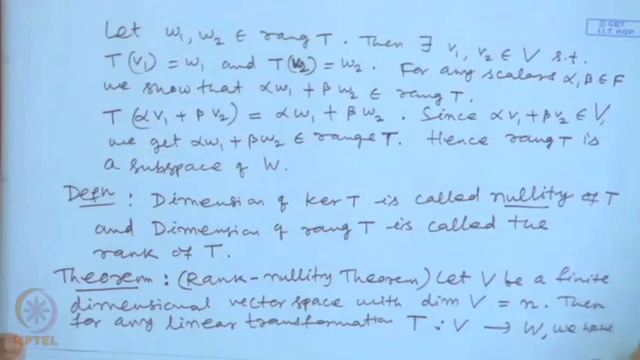 © CET
I.I.T. KGP
Let w₁, w₂ ∈ rang T. Then ∃ v₁, v₂ ∈ V s.t.
T(v₁) = w₁ and T(v₂) = w₂. For any scalars α, β ∈ F
we show that αw₁ + βw₂ ∈ rang T.
T(αv₁ + βv₂) = αw₁ + βw₂. Since αv₁ + βv₂ ∈ V,
we get αw₁ + βw₂ ∈ range T. Hence rang T is
a subspace of W.
Defn : Dimension of ker T is called nullity of T
and Dimension of rang T is called the
rank of T.
Theorem : (Rank-nullity Theorem) Let V be a finite
dimensional vector space with dim V = n. Then
for any linear transformation T : V → W, we have
NPTEL